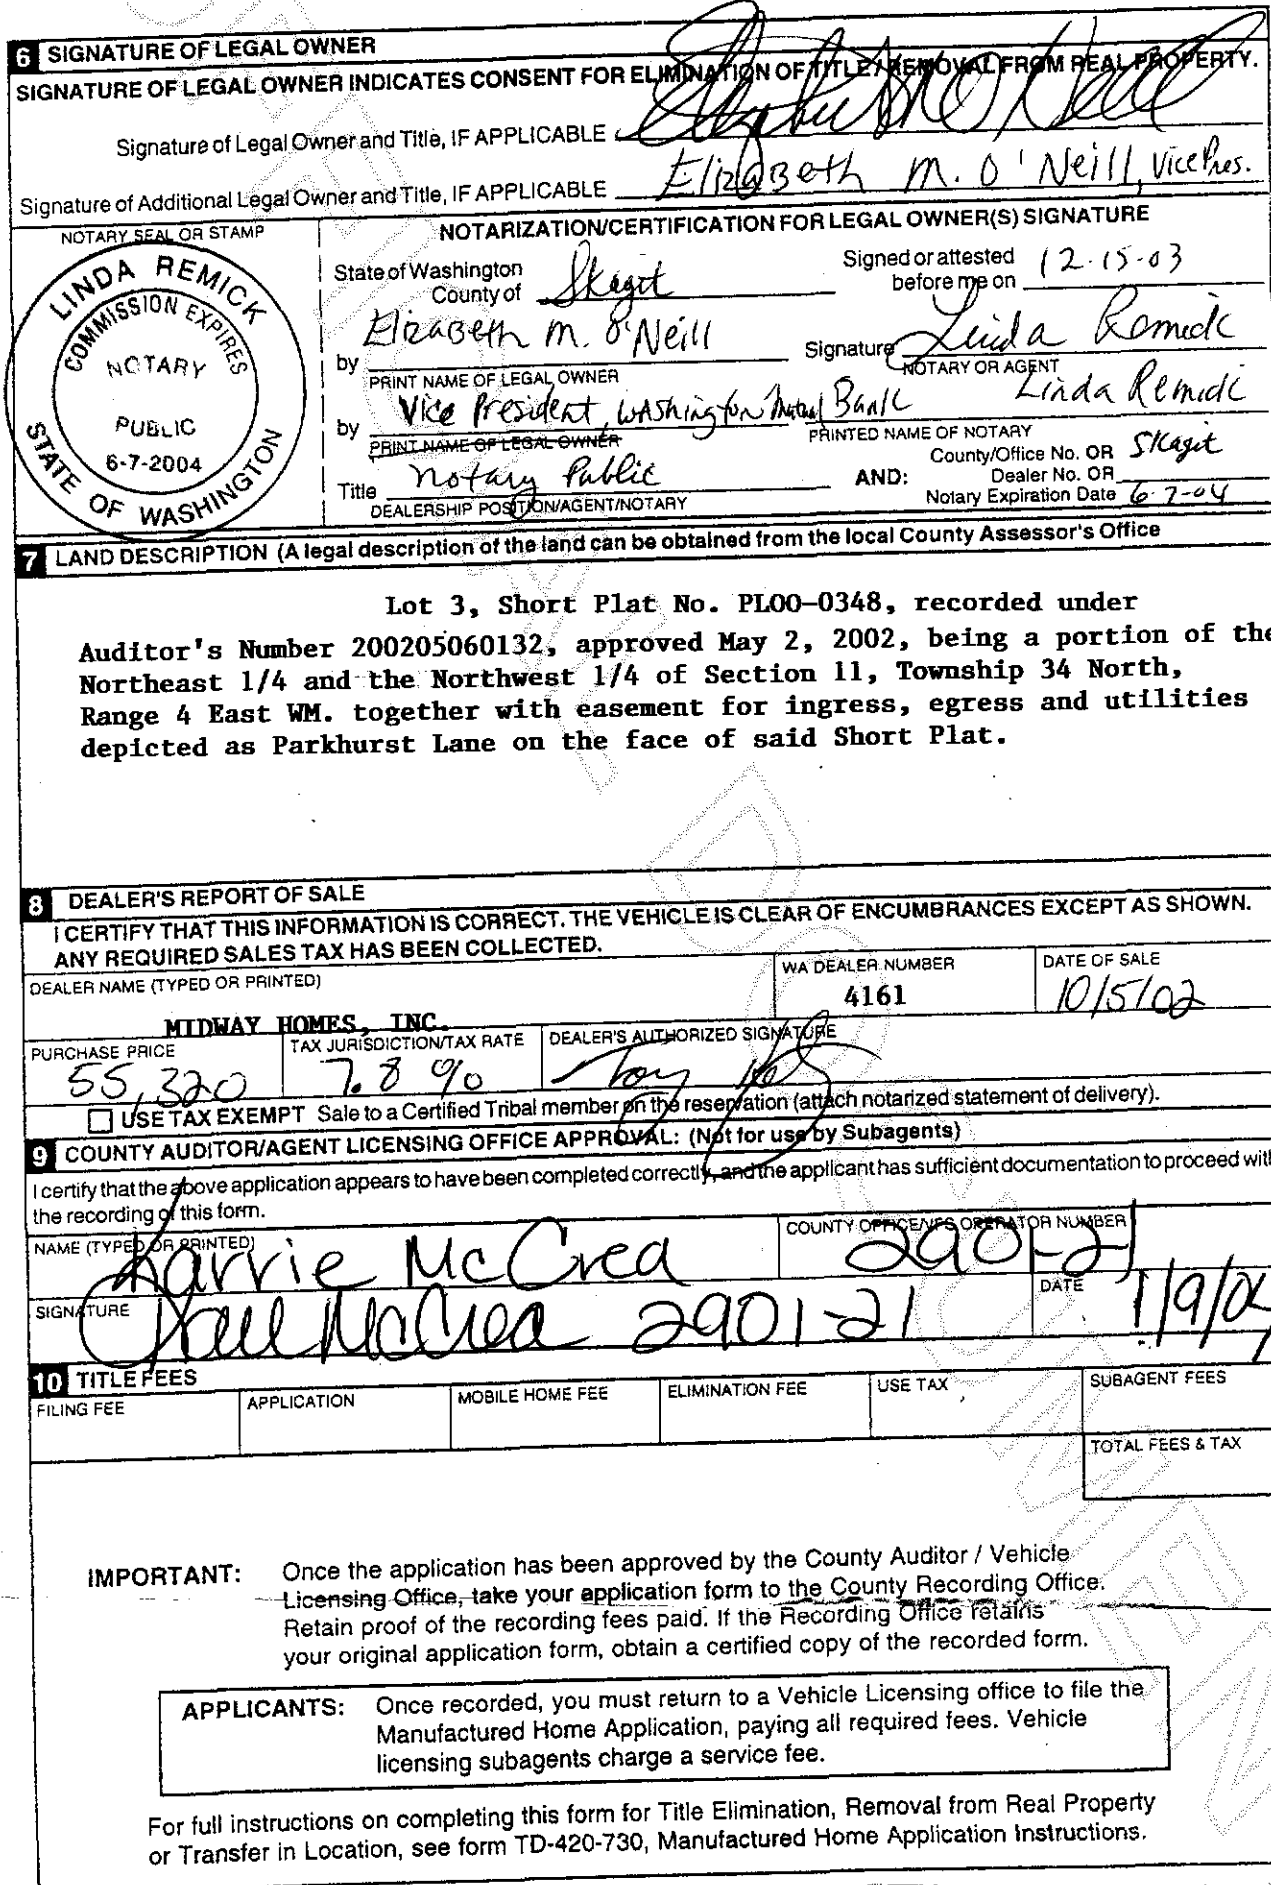 6 SIGNATURE OF LEGAL OWNER
SIGNATURE OF LEGAL OWNER INDICATES CONSENT FOR ELIMINATION OF TITLE / REMOVAL FROM REAL PROPERTY.
Signature of Legal Owner and Title, IF APPLICABLE Elizabeth M O'Neill
Signature of Additional Legal Owner and Title, IF APPLICABLE Elizabeth M. O'Neill, Vice Pres.
NOTARY SEAL OR STAMP
LINDA REMICK
COMMISSION EXPIRES
NOTARY
PUBLIC
6-7-2004
STATE OF WASHINGTON
NOTARIZATION/CERTIFICATION FOR LEGAL OWNER(S) SIGNATURE
State of Washington
County of Skagit
Signed or attested
before me on 12-15-03
by Elizabeth M. O'Neill
PRINT NAME OF LEGAL OWNER
Signature Linda Remick
NOTARY OR AGENT
by Vice President, Washington Mutual Bank
PRINT NAME OF LEGAL OWNER
Linda Remick
PRINTED NAME OF NOTARY
Title Notary Public
DEALERSHIP POSITION/AGENT/NOTARY
AND:
County/Office No. OR Skagit
Dealer No. OR
Notary Expiration Date 6-7-04
7 LAND DESCRIPTION (A legal description of the land can be obtained from the local County Assessor's Office
Lot 3, Short Plat No. PL00-0348, recorded under
Auditor's Number 200205060132, approved May 2, 2002, being a portion of the
Northeast 1/4 and the Northwest 1/4 of Section 11, Township 34 North,
Range 4 East WM. together with easement for ingress, egress and utilities
depicted as Parkhurst Lane on the face of said Short Plat.
8 DEALER'S REPORT OF SALE
I CERTIFY THAT THIS INFORMATION IS CORRECT. THE VEHICLE IS CLEAR OF ENCUMBRANCES EXCEPT AS SHOWN.
ANY REQUIRED SALES TAX HAS BEEN COLLECTED.
DEALER NAME (TYPED OR PRINTED)
MIDWAY HOMES, INC.
WA DEALER NUMBER
4161
DATE OF SALE
10/5/02
PURCHASE PRICE
55,320
TAX JURISDICTION/TAX RATE
7.8 %
DEALER'S AUTHORIZED SIGNATURE
USE TAX EXEMPT Sale to a Certified Tribal member on the reservation (attach notarized statement of delivery).
9 COUNTY AUDITOR/AGENT LICENSING OFFICE APPROVAL: (Not for use by Subagents)
I certify that the above application appears to have been completed correctly, and the applicant has sufficient documentation to proceed with
the recording of this form.
NAME (TYPED OR PRINTED)
Karrie McCrea
COUNTY OFFICE/VFS OPERATOR NUMBER
2901-21
SIGNATURE
McCrea 2901-21
DATE
1/9/04
10 TITLE FEES
FILING FEE
APPLICATION
MOBILE HOME FEE
ELIMINATION FEE
USE TAX
SUBAGENT FEES
TOTAL FEES & TAX
IMPORTANT: Once the application has been approved by the County Auditor / Vehicle
Licensing Office, take your application form to the County Recording Office.
Retain proof of the recording fees paid. If the Recording Office retains
your original application form, obtain a certified copy of the recorded form.
APPLICANTS: Once recorded, you must return to a Vehicle Licensing office to file the
Manufactured Home Application, paying all required fees. Vehicle
licensing subagents charge a service fee.
For full instructions on completing this form for Title Elimination, Removal from Real Property
or Transfer in Location, see form TD-420-730, Manufactured Home Application Instructions.